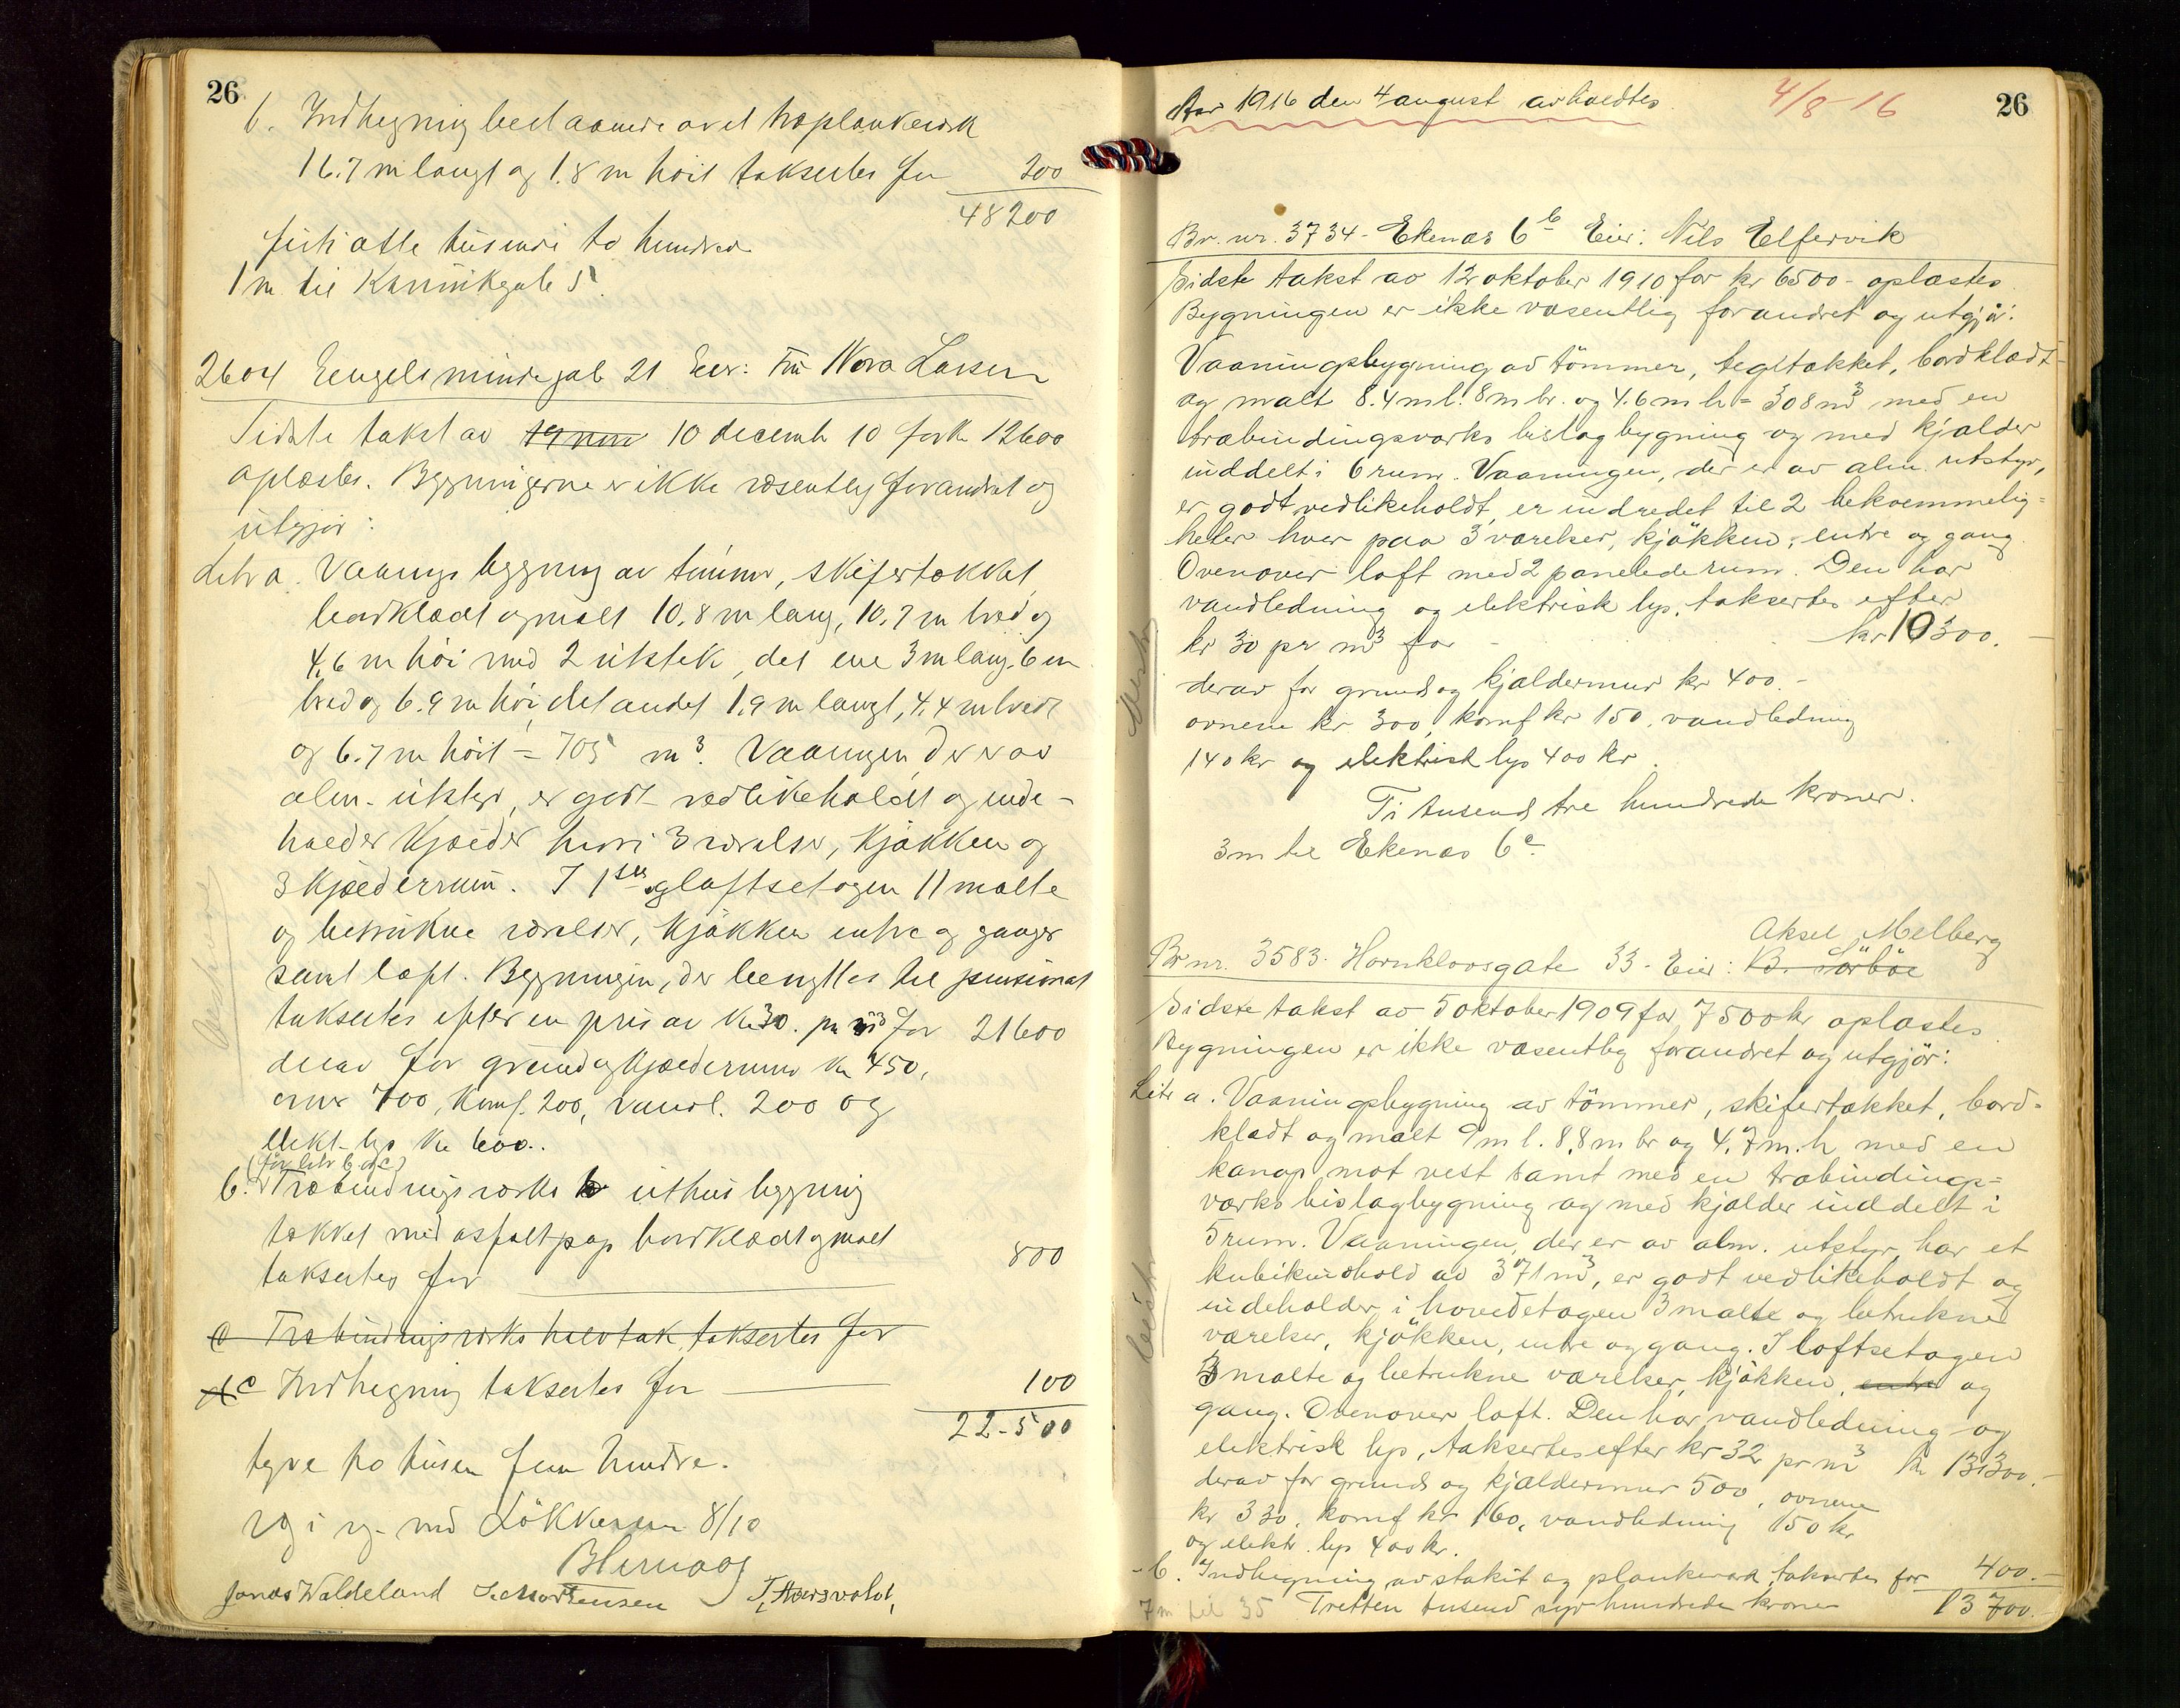 26
b. Indhegning bestaaende av et træplankeværk
16.7 m langt og 1.8 m höit taksertes for 200
48200
firti otte tusende to hundrede
1 m til Kannikgate 5
2604 Engelsmindegate 21 Eier: Fru Nora Larsen
Sidste takst av 19 nov 10 decemb 10 for kr 12600
oplæstes. Bygningerne er ikke væsentlig forandret og
utgjör:
Litr a. Vaanings bygning av tömmer, skifertækket
bordklædt og malt 10.8 m lang, 10.7 m bred og
4.6 m höi med 2 utstik, det ene 3 m lang, 6 m
bred og 6.9 m höi, det andet 1.9 m langt, 4.4 m bredt
og 6.7 m höit = 705 m³. Vaaningen, der er av
alm. utstyr, er godt vedlikeholdt og inde-
holder kjælder hvori 3 værelser, kjökken og
3 kjælderrum. I 1ste og loftsetagen 11 malte
og betrukne værelser, kjökken entre og ganger
samt loft. Bygningen, der benyttes til pensionat
taksertes efter en pris av kr 30. pr m³ for 21600
derav for grund og kjældermur kr 450,
ovner 700, komf. 200, vandl. 200 og
elekt. lys kr 600..
(för litr b og c)
b. Træbindingsverks uthusbygning
tækket med asfaltpap bordklædt og malt
taksertes for 800
c Træbindingsverks halvtak taksertes for
d c Indhegning taksertes for 100
22.500
tyve to tusen fem hundre.
Jonas Waldeland
26
Aar 1916 den 4 august avholdtes 4/8 16
Br. nr. 3734 - Ekenæs 6b Eier: Nils Elfervik
Sidste takst av 12 oktober 1910 for kr 6500 - oplæstes
Bygningen er ikke væsentlig forandret og utgjör:
Vaaningsbygning av tömmer, tegltækket, bordklædt
og malt 8.4 m l. 8 m br. og 4.6 m h = 308 m³ med en
træbindingsværks bislagbygning og med kjælder
inddelt i 6 rum. Vaaningen, der er av alm. utstyr,
er godt vedlikeholdt, er indredet til 2 bekvemmelig=
heter hver paa 3 værelser, kjökken, entre og gang
Ovenover loft med 2 panelede rum. Den har
vandledning og elektrisk lys, taksertes efter
kr 30 pr m³ for - kr 10300. -
derav for grund og kjældermur kr 400. -
ovnene kr 300, komf kr 150, vandledning
140 kr og elektrisk lys 400 kr.
Ti tusend tre hundrede kroner.
3 m til Ekenæs 6c
Aksel Melberg
Br nr. 3583. Hornklovsgate 33 - Eier: B. Törböe
Sidste takst av 5 oktober 1909 for 7500 kr oplæstes
Bygningen er ikke væsentlig forandret og utgjör:
Litr a. Vaaningsbygning av tömmer, skifertækket, bord-
klædt og malt 9 m l. 8,8 m br og 4,7 m. h med en
kanap mot vest samt med en træbindings=
værks bislagbygning og med kjælder inddelt i
5 rum. Vaaningen, der er av alm. utstyr, har et
kubikindhold av 371 m³, er godt vedlikeholdt og
indeholder i hovedetagen 3 malte og betrukne
værelser, kjökken, entre og gang. I loftsetagen
3 malte og betrukne værelser, kjökken, entre og
gang. Ovenover loft. Den har vandledning og
elektrisk lys, taksertes efter kr 32 pr m³ kr 13300. -
derav for grund og kjældermur 500, ovnene
kr 330, komf kr 160, vandledning 150 kr
og elektr. lys 400 kr.
- b. Indhegning av stakit og plankeværk taksertes for 400. -
7 m til 35 Tretten tusend syv hundrede kroner 13700. -